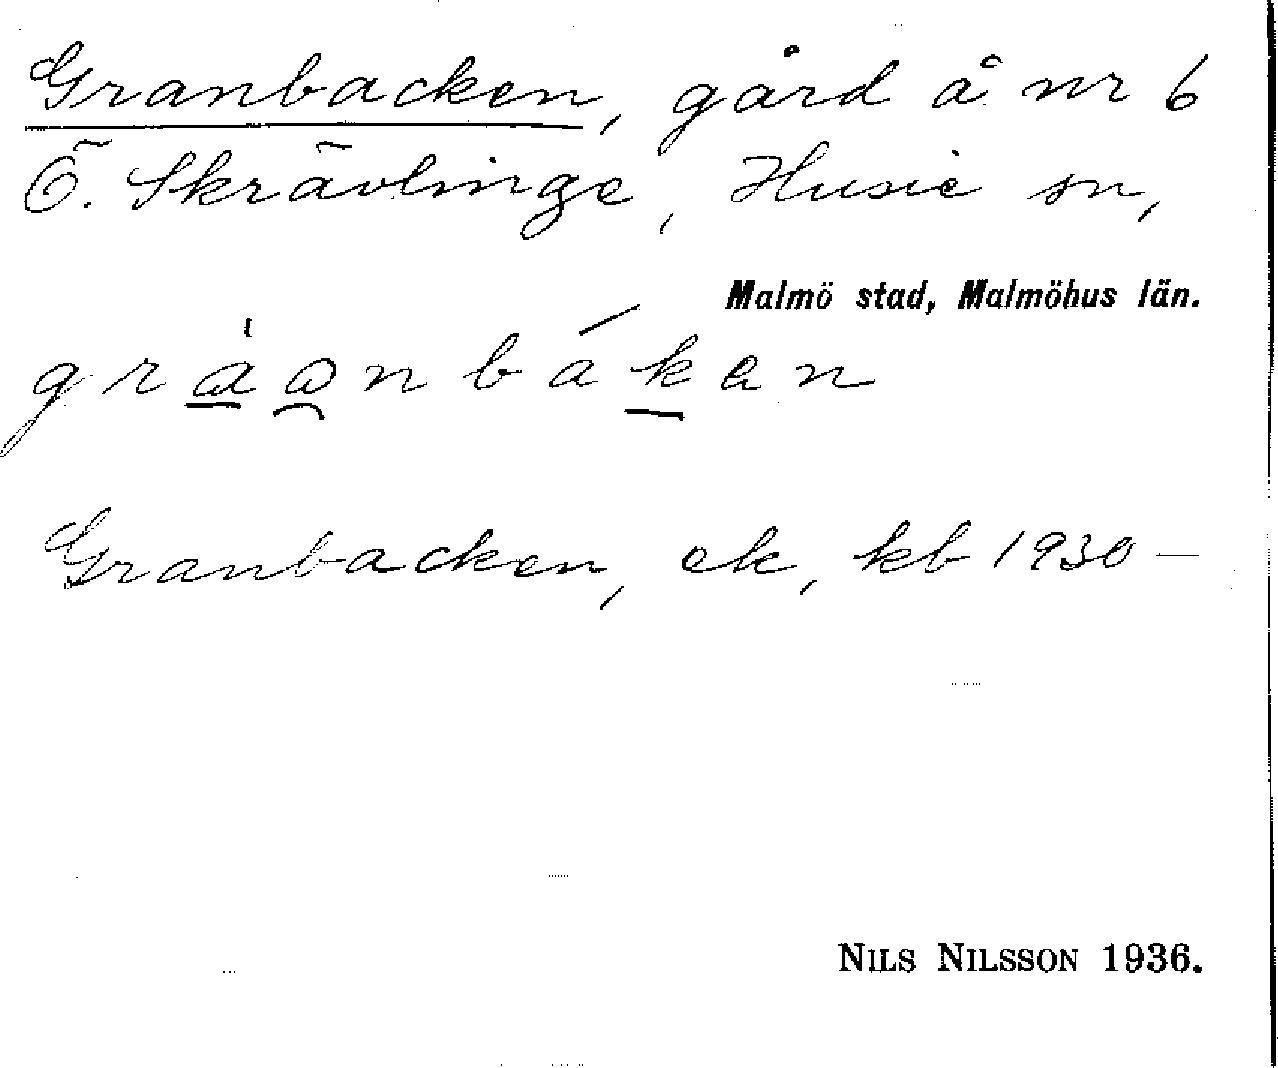 Granbacken, gård å nr 6
Ö. Skrävlinge, Husie sn,
Malmö stad, Malmöhus län.
Granbacken, ek, kb 1930–
NILS NILSSON 1936.